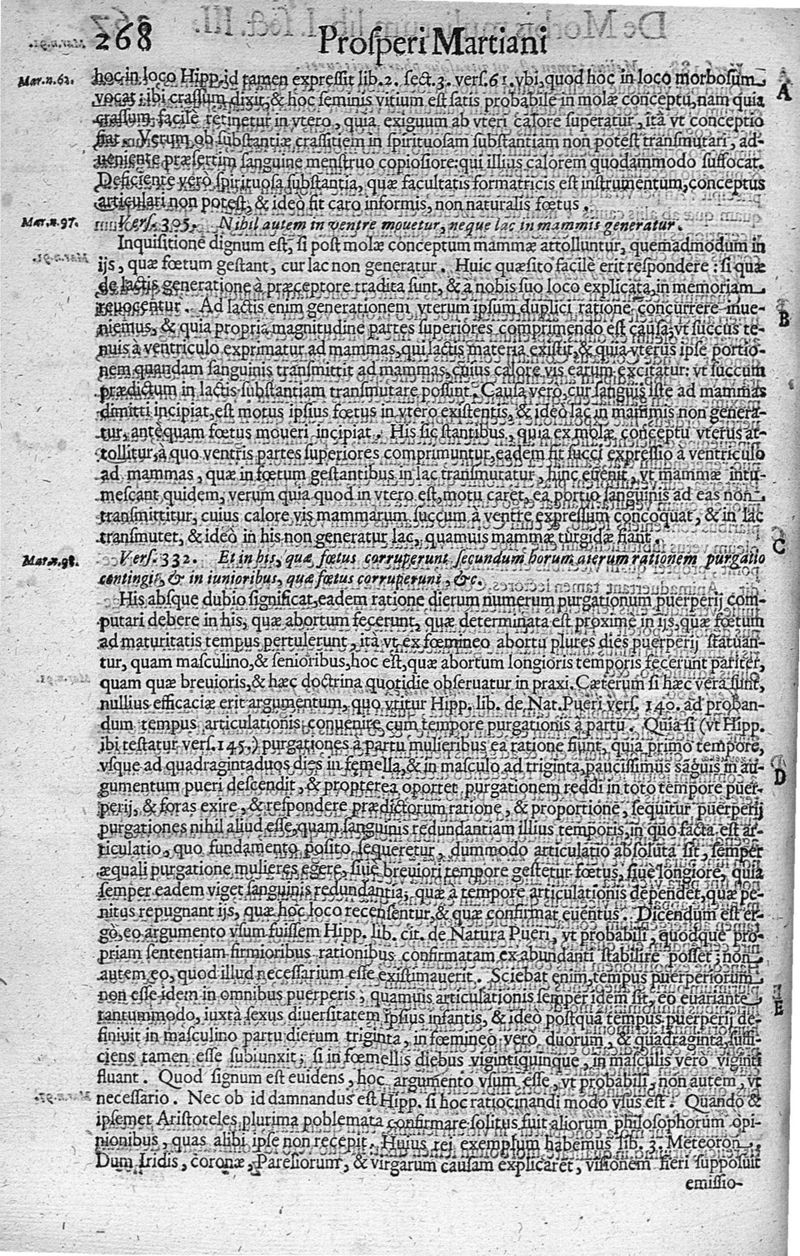 268 Prosperi Martiani
Mar.n.62. hoc in loco Hipp. id tamen expressit lib.2. sect.3. vers.61. vbi, quod hoc in loco morbosum
vocat ibi crassum dixit, & hoc seminis vitium est satis probabile in molæ conceptu, nam quia
crassum facilè retinetur in vtero, quia exiguum ab vteri calore superatur, ità vt conceptio
fiat. Verum ob substantiæ crassitiem in spirituosam substantiam non potest transmutari, ad-
ueniente præsertim sanguine menstruo copiosiore: qui illius calorem quodammodo suffocat.
Deficiente verò spirituosa substantia, quæ facultatis formatricis est instrumentum, conceptus
articulari non potest, & ideò fit caro informis, non naturalis fœtus.
Mar.n.97. Vers. 305. Nihil autem in ventre mouetur, neque lac in mammis generatur.
Inquisitione dignum est, si post molæ conceptum mammæ attolluntur, quemadmodum in
ijs, quæ fœtum gestant, cur lac non generatur. Huic quæsito facilè erit respondere: si quæ
de lactis generatione à præceptore tradita sunt, & à nobis suo loco explicata, in memoriam
reuocentur. Ad lactis enim generationem vterum ipsum duplici ratione concurrere inue-
niemus, & quia propria magnitudine partes superiores comprimendo est causa, vt succus te-
nuis à ventriculo exprimatur ad mammas, qui lactis materia existit, & quia vterus ipse portio-
nem quandam sanguinis transmittit ad mammas, cuius calore vis earum excitatur: vt succum
prædictum in lactis substantiam transmutare possint. Causa verò, cur sanguis iste ad mammas
dimitti incipiat, est motus ipsius fœtus in vtero existentis, & ideò lac in mammis non genera-
tur, antequam fœtus moueri incipiat. His sic stantibus, quia ex molæ conceptu vterus at-
tollitur, à quo ventris partes superiores comprimuntur, eadem fit succi expressio à ventriculo
ad mammas, quæ in fœtum gestantibus in lac transmutatur, hinc euenit, vt mammæ intu-
mescant quidem, verum quia quod in vtero est, motu caret, ea portio sanguinis ad eas non
transmittitur, cuius calore vis mammarum succum à ventre expressum concoquat, & in lac
transmutet, & ideò in his non generatur lac, quamuis mammæ turgidæ fiant.
Mar.n.98. Vers. 332. Et in his, quæ fœtus corruperunt secundum horum dierum rationem purgatio
contingit, & in iunioribus, quæ fœtus corruperunt, &c.
His absque dubio significat, eadem ratione dierum numerum purgationum puerperij com-
putari debere in his, quæ abortum fecerunt, quæ determinata est proximè in ijs, quæ fœtum
ad maturitatis tempus pertulerunt, ità vt ex fœmineo abortu plures dies puerperij statuan-
tur, quam masculino, & senioribus, hoc est, quæ abortum longioris temporis fecerunt pariter,
quam quæ breuioris, & hæc doctrina quotidie obseruatur in praxi. Cæterum si hæc vera sunt,
nullius efficaciæ erit argumentum, quo vtitur Hipp. lib. de Nat. Pueri vers. 140. ad proban-
dum tempus articulationis conuenire cum tempore purgationis à partu. Quia si (vt Hipp.
ibi testatur vers. 145.) purgationes à partu mulieribus ea ratione fiunt, quia primo tempore,
vsque ad quadragintaduos dies in femella, & in masculo ad triginta, paucissimus saguis in au-
gumentum pueri descendit, & propterea oportet purgationem reddi in toto tempore puer-
perij, & foras exire, & respondere prædictorum ratione, & proportione, sequitur puerperij
purgationes nihil aliud esse, quam sanguinis redundantiam illius temporis, in quo facta est ar-
ticulatio, quo fundamento posito sequeretur, dummodo articulatio absoluta sit, semper
æquali purgatione mulieres egere, siue breuiori tempore gestetur fœtus, siue longiore, quia
semper eadem viget sanguinis redundantia, quæ à tempore articulationis dependet, quæ pe-
nitus repugnant ijs, quæ hoc loco recensentur, & quæ confirmat euentus. Dicendum est er-
gò, eo argumento vsum fuissem Hipp. lib. cit. de Natura Pueri, vt probabili, quodque pro-
priam sententiam firmioribus rationibus confirmatam ex abundanti stabilire posset; non
autem eo, quod illud necessarium esse existimauerit. Sciebat enim tempus puerperiorum
non esse idem in omnibus puerperis; quamuis articulationis semper idem sit, eo euariante
tantummodo, iuxtà sexus diuersitatem ipsius infantis, & ideò postquã tempus puerperij de-
finiuit in masculino partu dierum triginta, in fœmineo verò duorum, & quadraginta, suffi-
ciens tamen esse subiunxit; si in fœmellis diebus vigintiquinque, in masculis verò viginti
fluant. Quod signum est euidens, hoc argumento vsum esse, vt probabili, non autem, vt
necessario. Nec ob id damnandus est Hipp. si hoc ratiocinandi modo vsus est. Quandò &
ipsemet Aristoteles plurima poblemata confirmare solitus fuit aliorum philosophorum opi-
nionibus, quas alibi ipse non recepit. Huius rei exemplum habemus lib. 3. Meteoron.
Dum Iridis, coronæ, Pareliorum, & virgarum causam explicaret, visionem fieri supposuit
emissio-
A
B
C
D
E